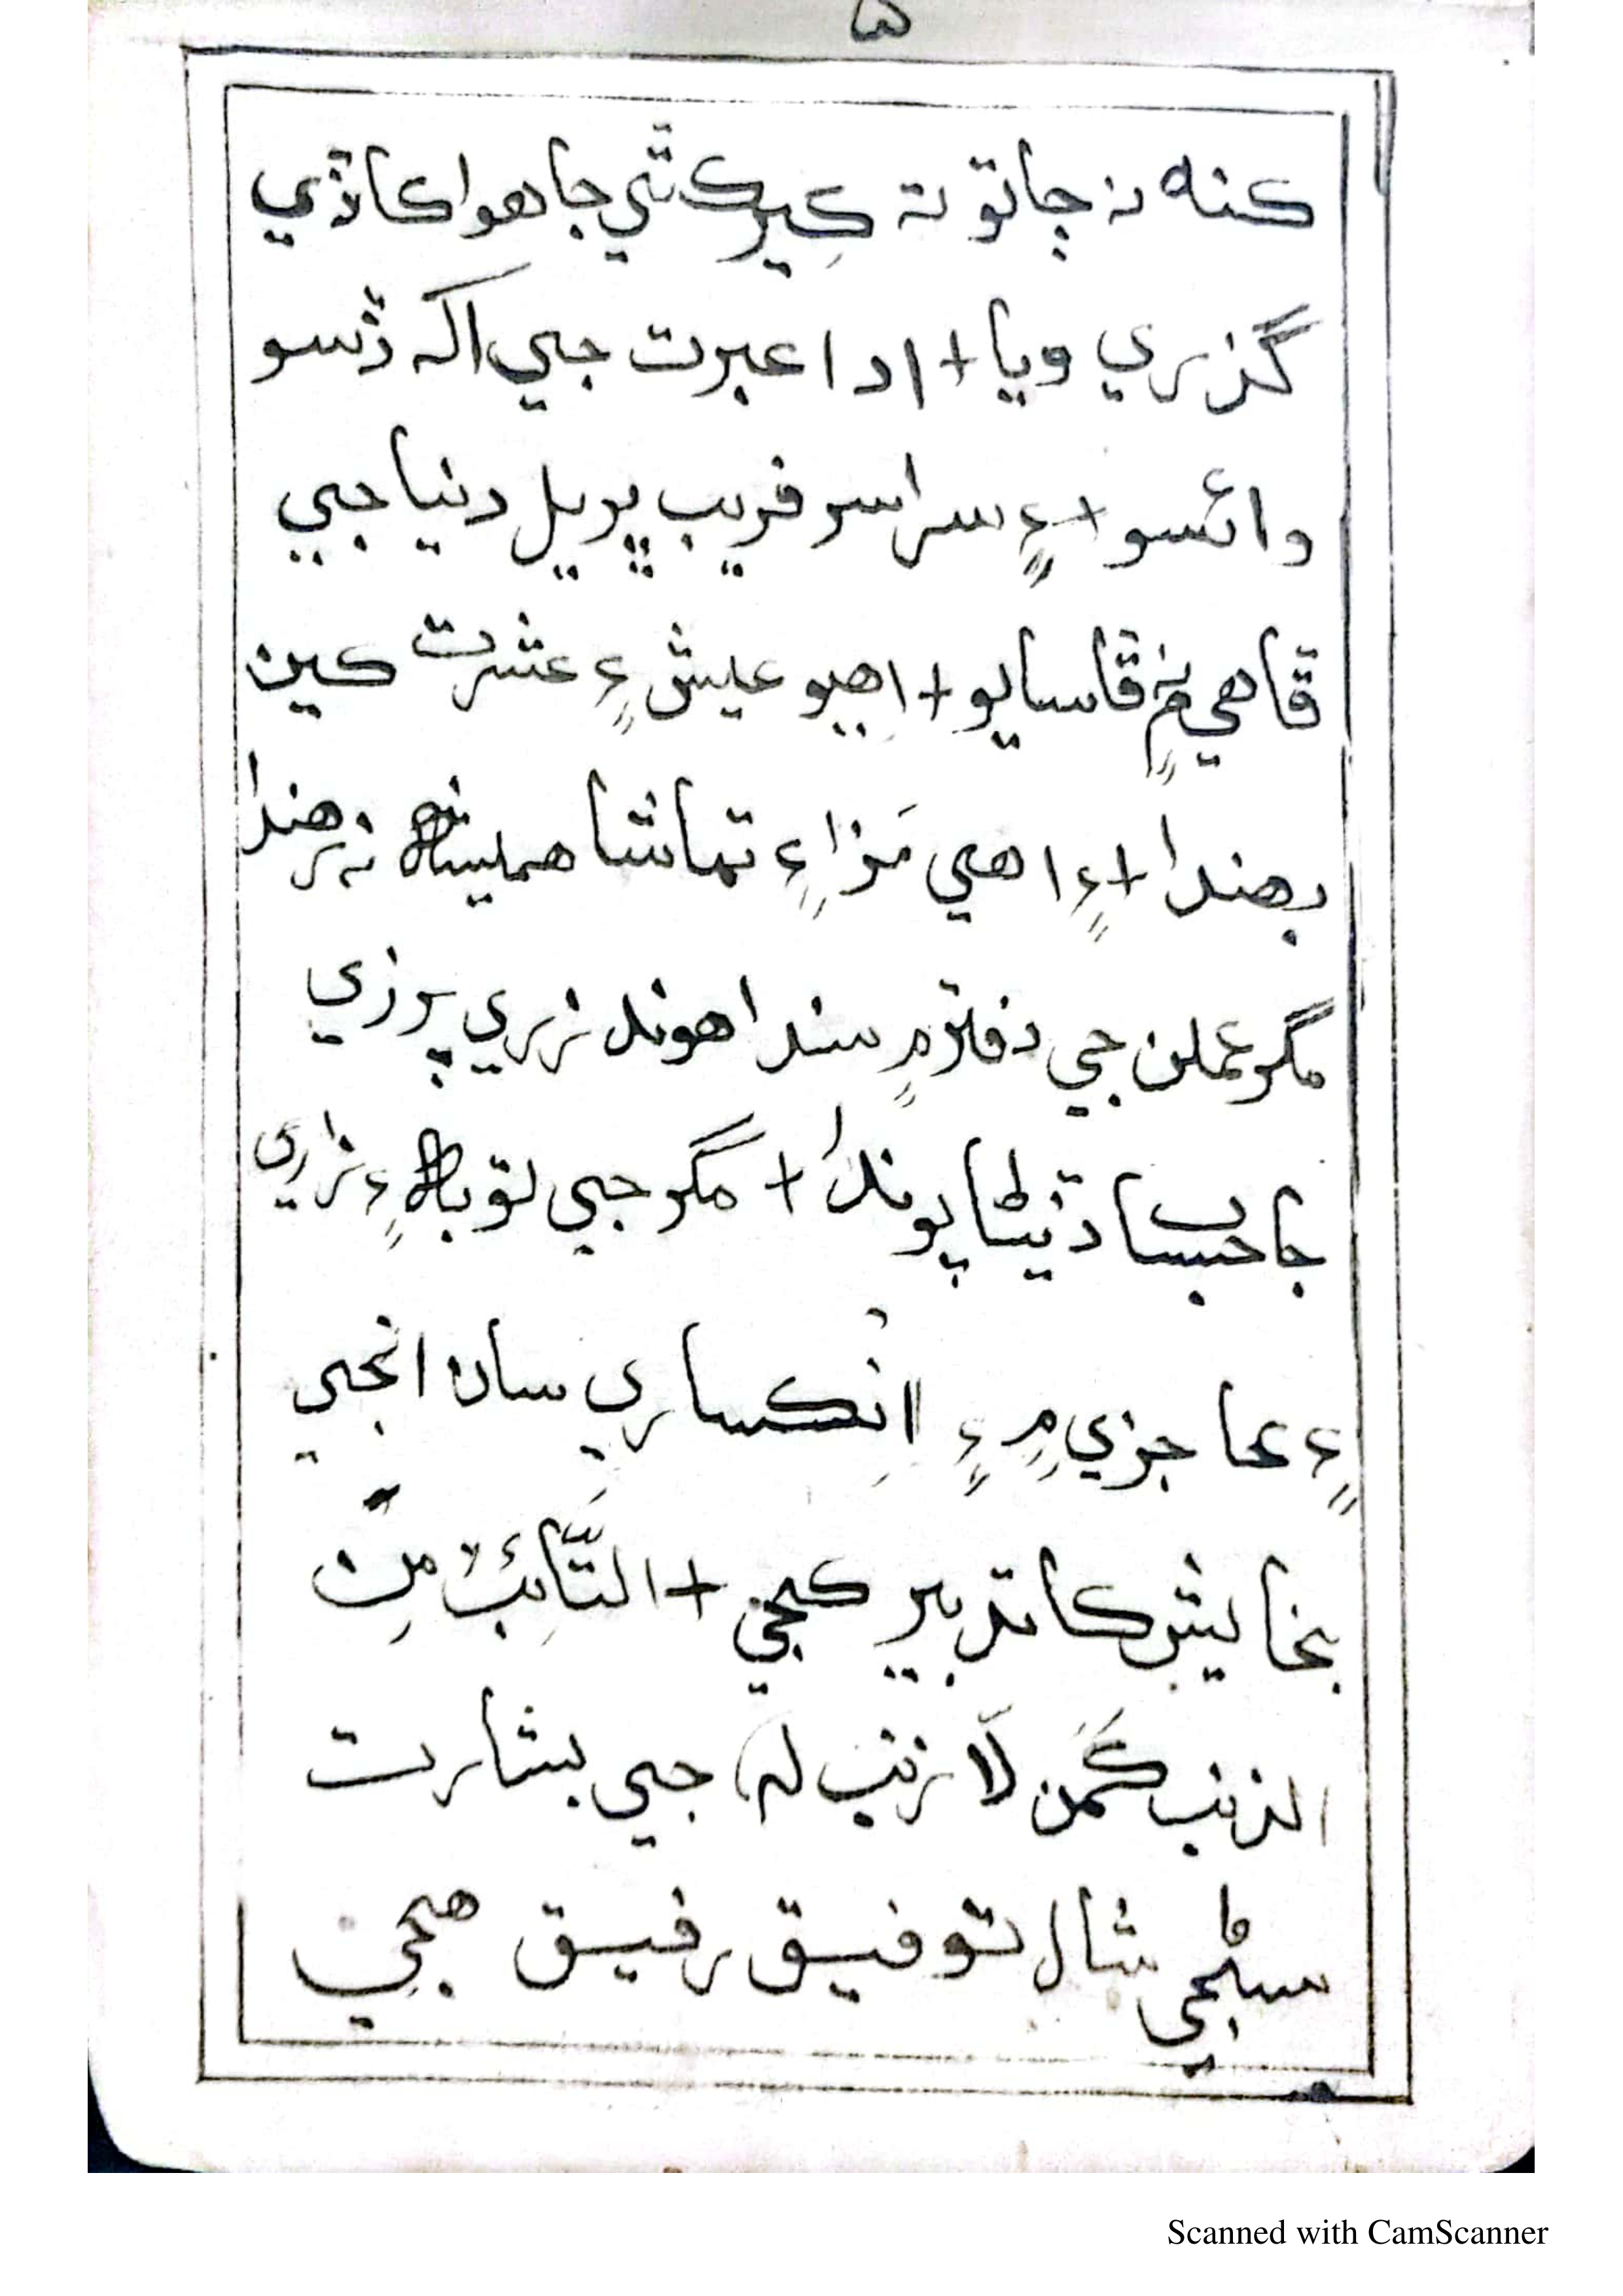 ۵
ڪنه نہ ڄاتو تہ ڪير ڪٿي جا هوا ڪاڏي
گذري ويا + ادا عبرت جي اکہ ڏسو
وائسو + ۽ سراسر فريب ڀريل دنيا جي
ڦاهي ۾ ڦاسايو + اهيو عيش ۽ عشرت ڪين
بهندا + ۽ اهي مَزا ۽ تماشا هميشه نہ رهندا
مگر عملن جي دفتر ۾ سندا هوند زري پرزي
جا حساب ڏيڻا پوندا + مگر جي توبهه ۽ زاري
۽ عاجزي ۾ ۽ اِنڪساري سان انجي
بخايش کا تدبير ڪجي + التَّائِبُ مِنَ
الذنب ڪَمَن لَا ذنب لہ) جي بشارت
سڻجي شال توفيق رفيق هجي
Scanned with CamScanner